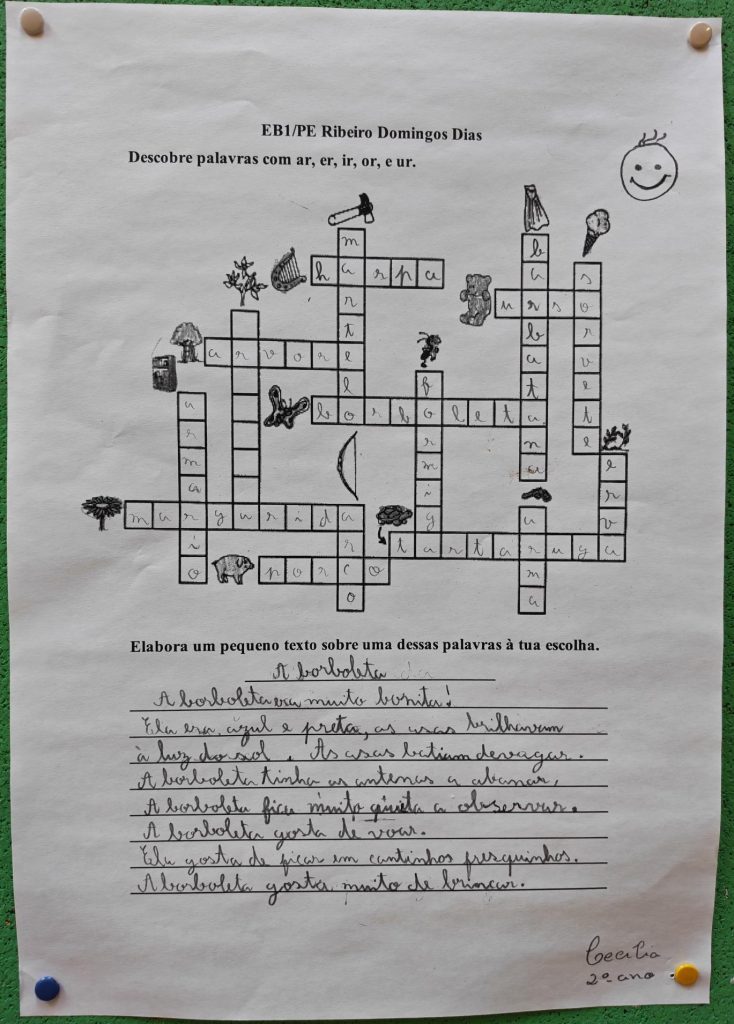 EB1/PE Ribeiro Domingos Dias
Descobre palavras com ar, er, ir, or, e ur.
martelo
harpa
barbatana
sorvete
urso
arvore
armario
borboleta
formiga
erva
margarida
arco
tartaruga
arma
porco
Elabora um pequeno texto sobre uma dessas palavras à tua escolha.
A borboleta
A borboleta era muito bonita!
Ela era azul e preta, as asas brilhavam
à luz do sol. As asas batiam devagar.
A borboleta tinha as antenas a abanar,
A borboleta fica muito quieta a observar.
A borboleta gosta de voar.
Ela gosta de ficar em cantinhos fresquinhos.
A borboleta gosta muito de brincar.
Cecília
2º ano